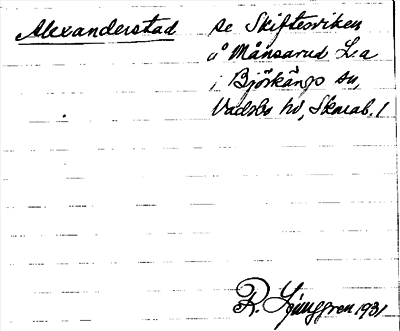 Alexanderstad se Skifterviken
å Månsarud L:a
i Björkängs sn,
Vadsbo hd, Skarab. l
R. Ljunggren 1931